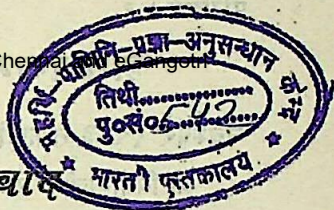 Chennai and eGangotri
महर्षि-पाणिनि-प्रज्ञा-अनुसन्धान केन्द्र
तिथी..............
पु०सं०542..........
* भारती पुस्तकालय *
वाद